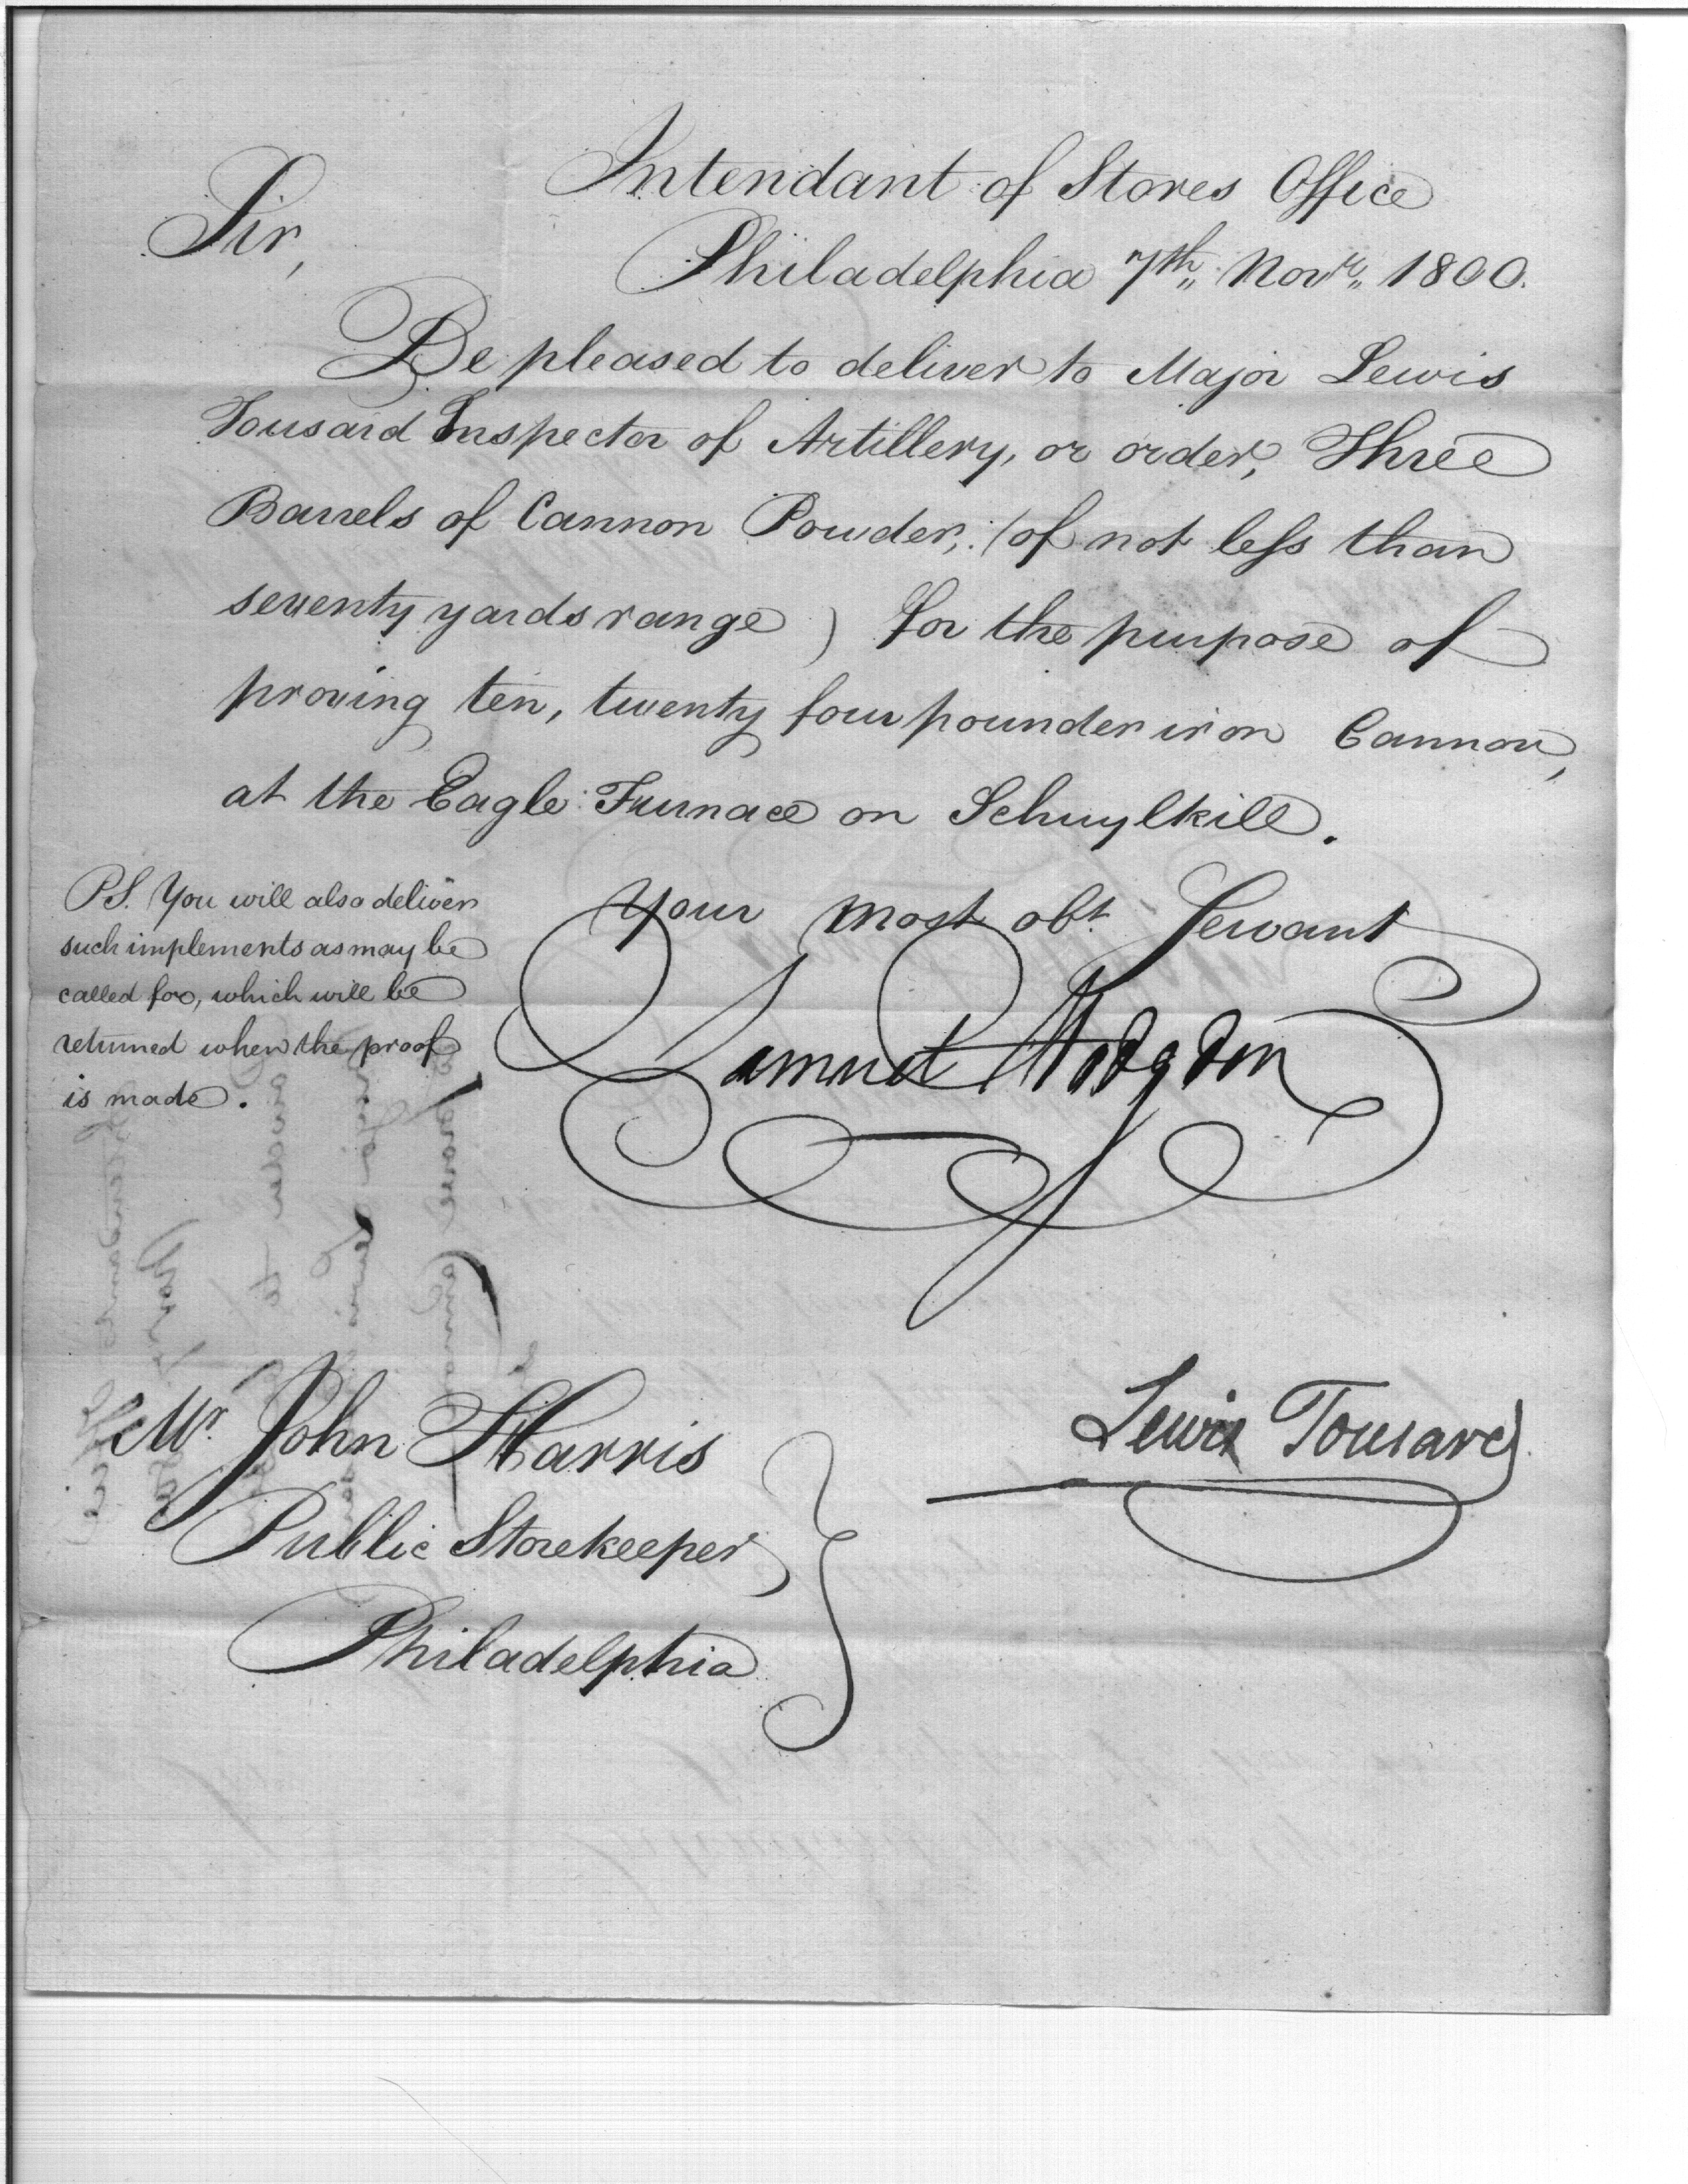 Intendant of Stores Office
Sir,
Philadelphia 7th,, Novr,, 1800.
Be pleased to deliver to Major Lewis
Tousard Inspector of Artillery, or order, Three
Barrels of Cannon Powder, (of not less than
seventy yards range) for the purpose of
proving ten, twenty four pounder iron Cannon,
at the Eagle Furnace on Schuylkill.
Your most obt. Servant
Samuel Hodgdon
PS. You will also deliver
such implements as may be
called for, which will be
returned when the proof
is made.
Lewis Tousard
Mr. John Harris
Public Storekeeper
Philadelphia